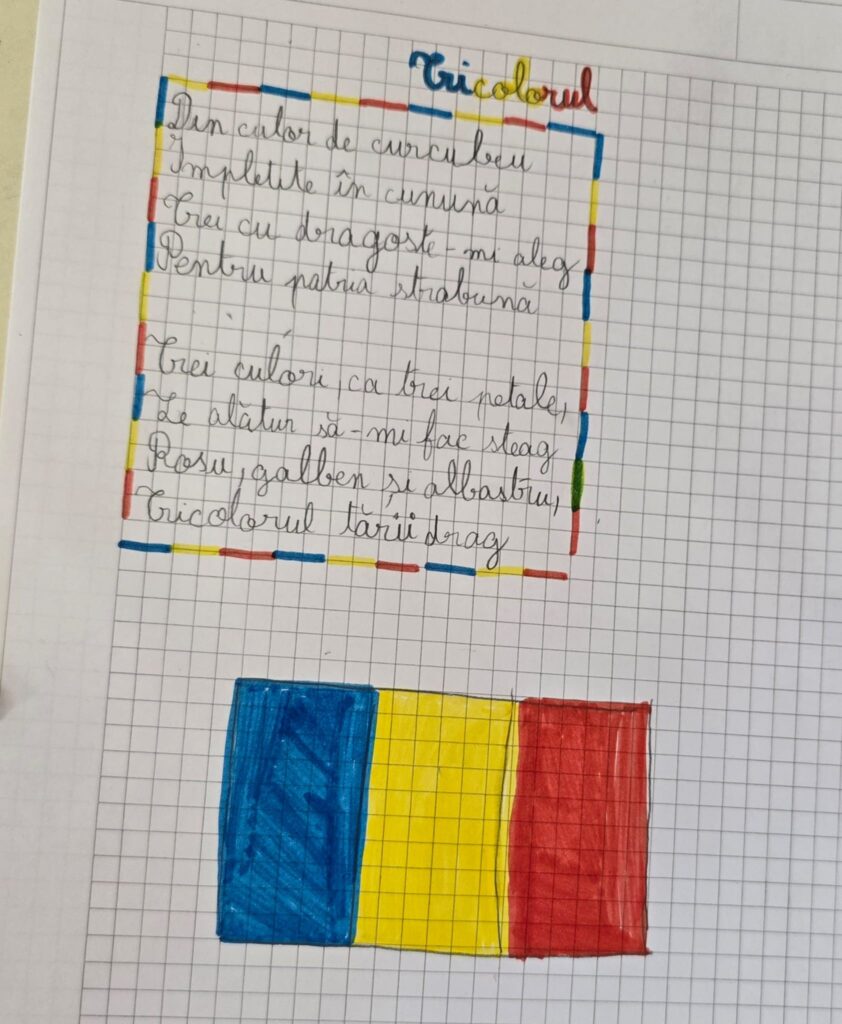 Tricolorul
Din culor de curcubeu
Impletite în cunună
Trei cu dragoste-mi aleg
Pentru patria strabună
Trei culori, ca trei petale,
Le alătur să-mi fac steag
Rosu, galben și albastru,
Tricolorul tării drag